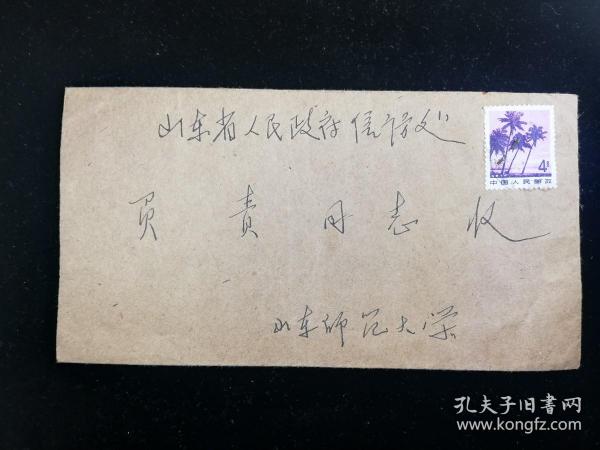 山东省人民政府信访处
4分
中国人民邮政
负责同志收
山东师范大学
孔夫子旧书网
www.kongfz.com